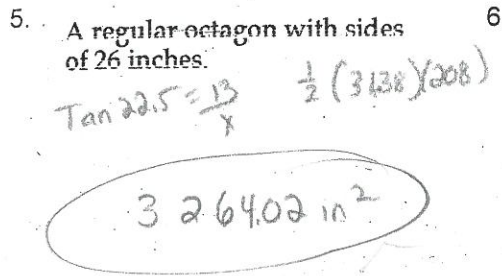 5. A regular octagon with sides 6
of 26 inches.
Tan 22.5 = 13/x
1/2 (31.38)(208)
3264.02 in²